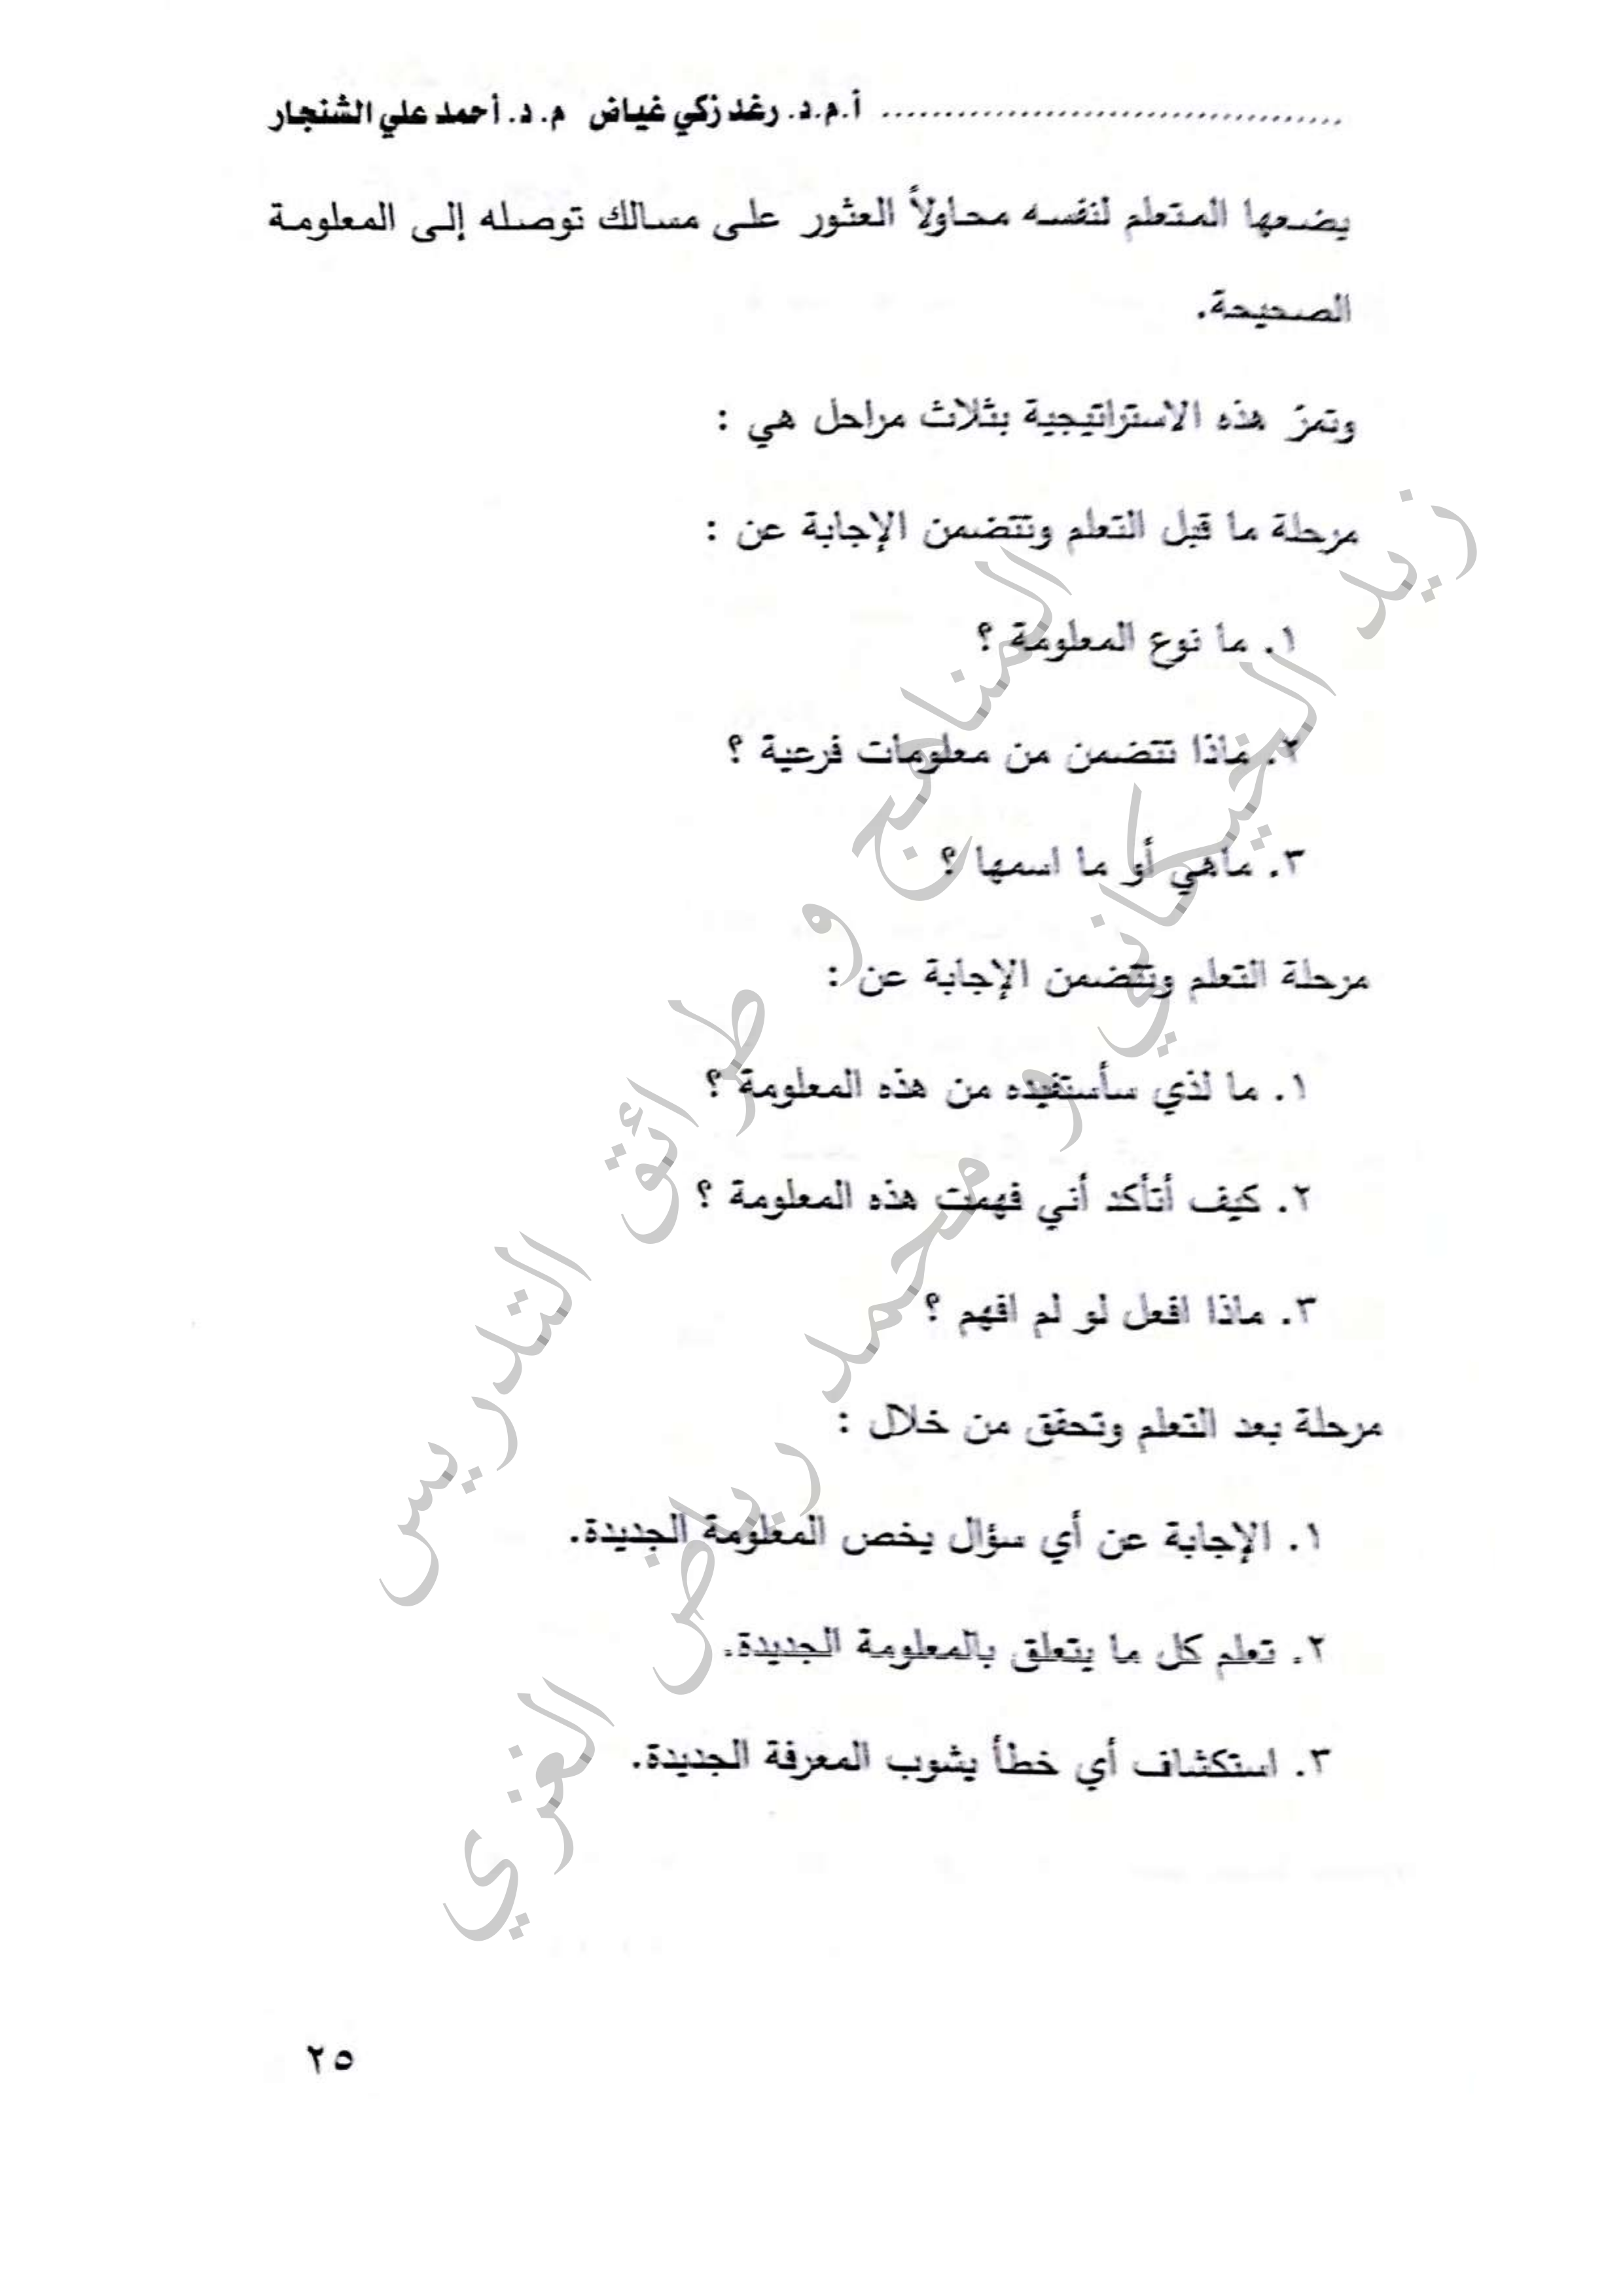 أ.م.د. رغد زكي غياض م. د. أحمد علي الشنجار
يضعها المتعلم لنفسه محاولاً العثور على مسالك توصله إلى المعلومة
الصحيحة.
وتمرّ هذه الاستراتيجية بثلاث مراحل هي :
مرحلة ما قبل التعلم وتتضمن الإجابة عن :
١. ما نوع المعلومة ؟
٢. ماذا تتضمن من معلومات فرعية ؟
٣. ماهي أو ما اسمها ؟
مرحلة التعلم وتتضمن الإجابة عن :
١. ما لذي سأستفيده من هذه المعلومة ؟
٢. كيف أتأكد أني فهمت هذه المعلومة ؟
٣. ماذا افعل لو لم افهم ؟
مرحلة بعد التعلم وتحقق من خلال :
١. الإجابة عن أي سؤال يخص المعلومة الجديدة.
٢. تعلم كل ما يتعلق بالمعلومة الجديدة.
٣. استكشاف أي خطأ يشوب المعرفة الجديدة.
٢٥
المناهج و طرائق التدريس
زيد الخيكاني و محمد رياض الغزي